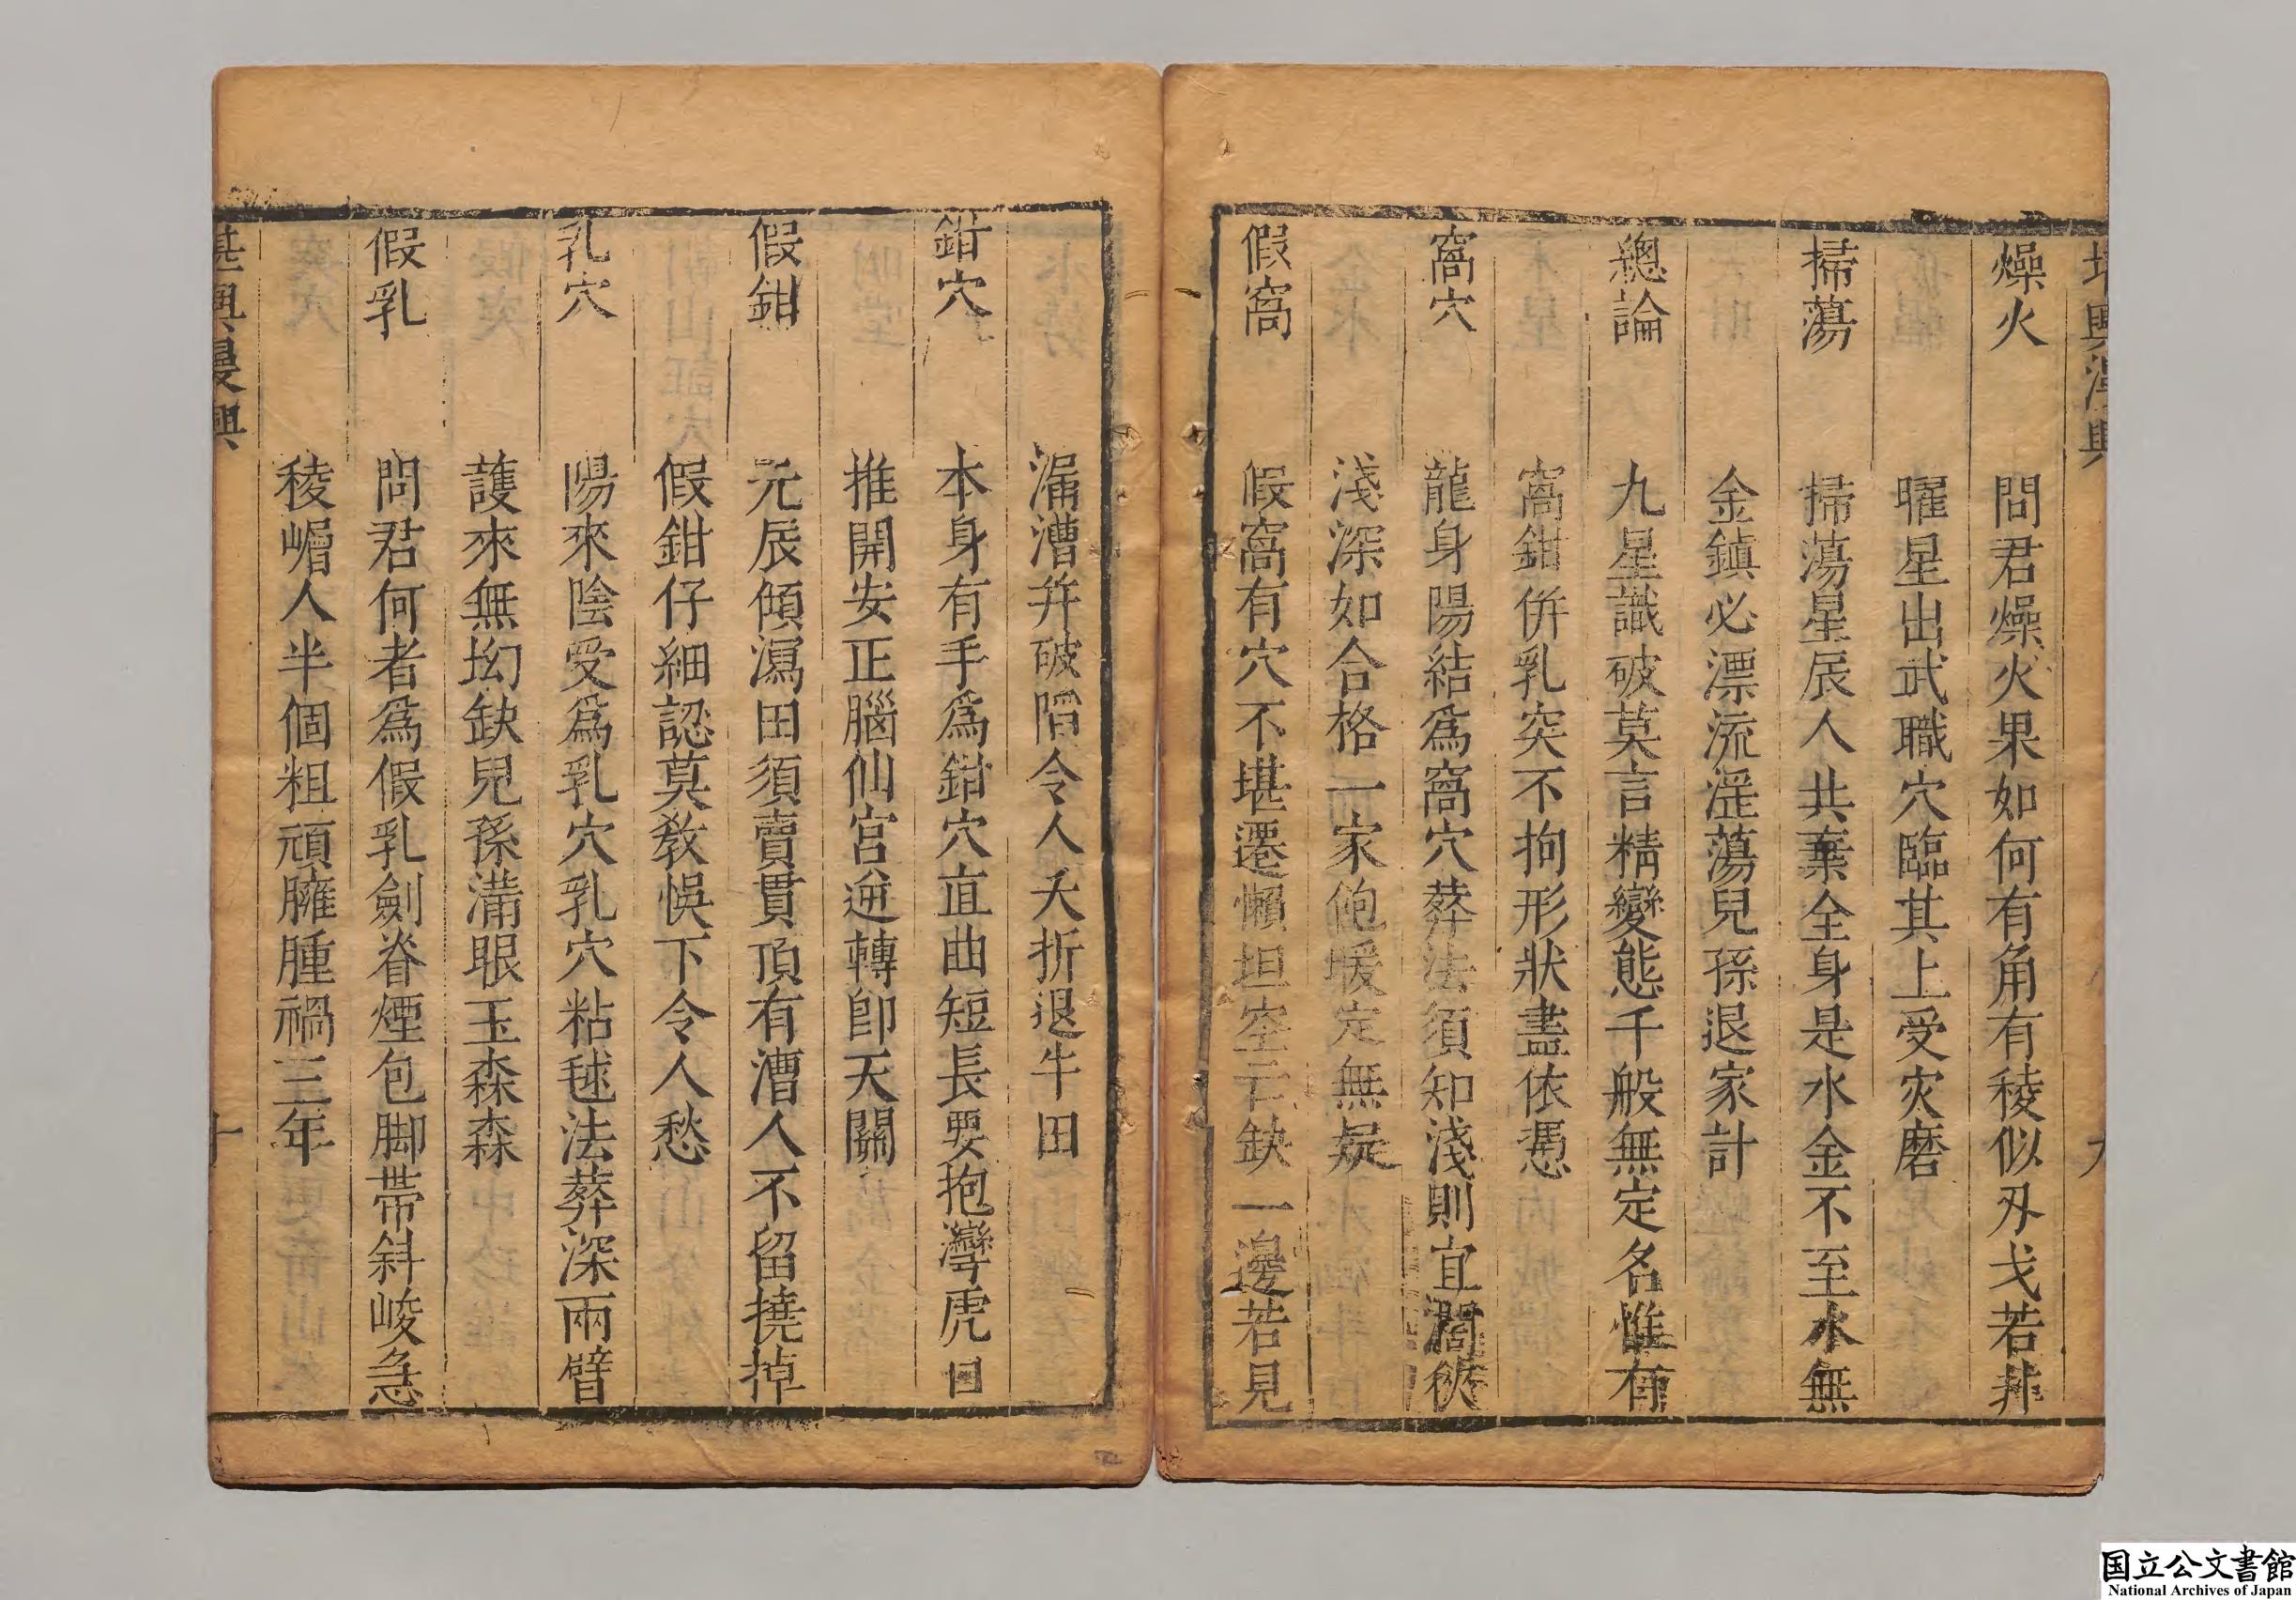 堪輿漫興 九
燥火 問君燥火果如何有角有稜似刄戈若非
曜星出武職穴臨其上受灾磨
掃蕩 掃蕩星辰人共棄全身是水金不至水無
金鎮必漂流滛蕩兒孫退家計
總論 九星識破莫言精變態千般無定名惟有
窩鉗併乳突不拘形狀盡依憑
窩穴 龍身陽結爲窩穴葬法須知淺則宜濶狹
淺深如合格一家飽暖定無疑
假窩 假窩有穴不堪遷懶坦空亡缺一邊若見
漏漕并破𨺗令人夭折退牛田
鉗穴 本身有手爲鉗穴直曲短長要抱彎虎目
推開安正腦仙宮逆轉卽天關
假鉗 元辰傾瀉田須賣貫頂有漕人不留撓掉
假鉗仔細認莫教悞下令人愁
乳穴 陽來陰受爲乳穴乳穴粘毬法葬深兩臂
護來無坳缺兒孫滿眼玉森森
假乳 問君何者爲假乳劍脊煙包脚帶斜峻急
稜嶒人半個粗頑臃腫禍三年
堪輿漫興 十
国立公文書館
National Archives of Japan